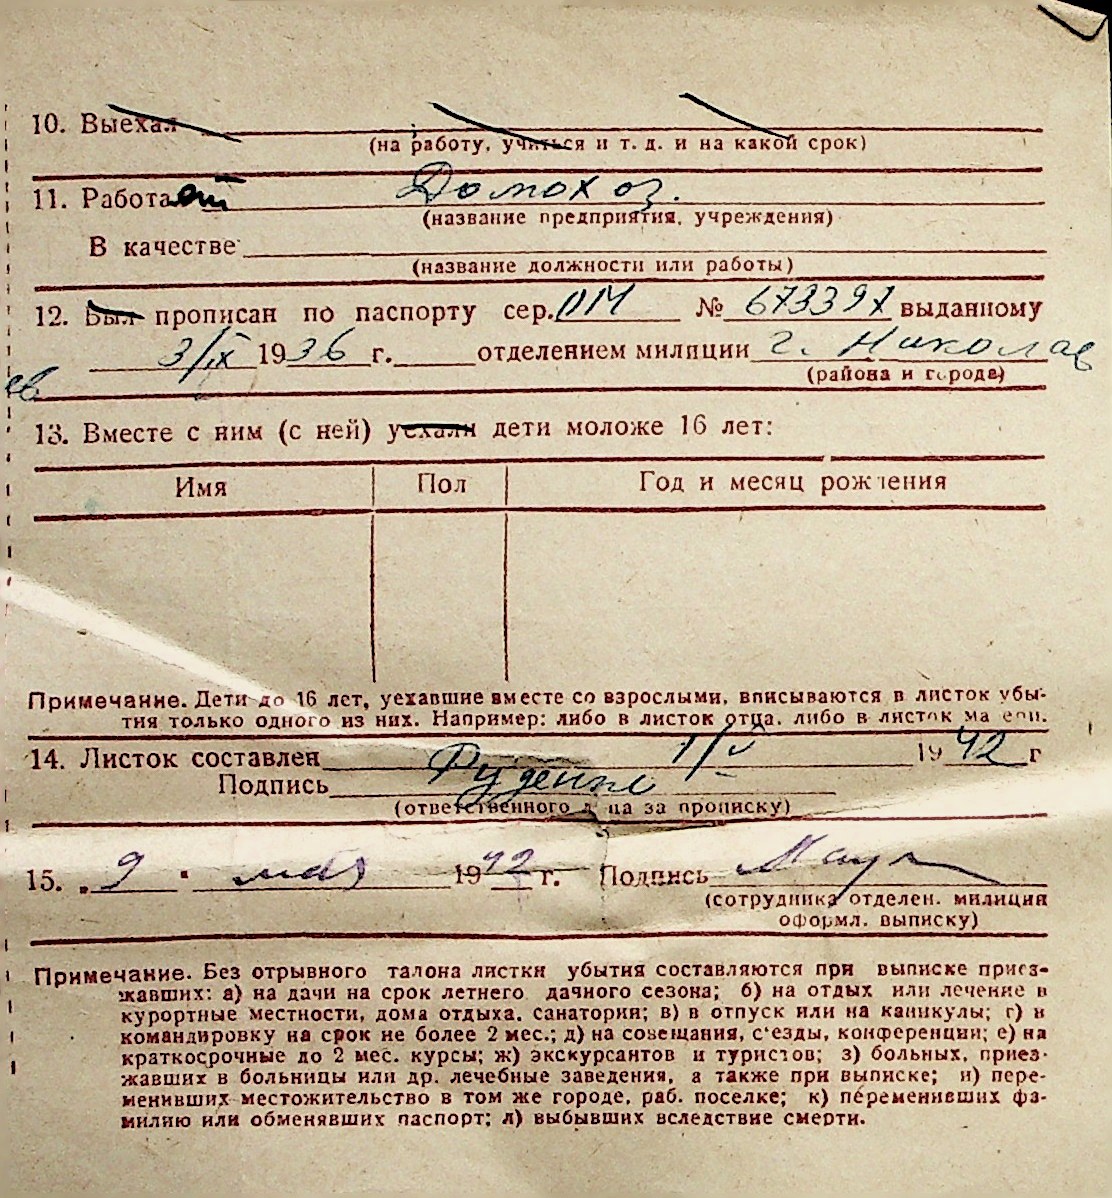 10. Выехал
(на работу, учиться и т. д. и на какой срок)
11. Работает Домохоз.
(название предприятия, учреждения)
В качестве
(название должности или работы)
12. Был прописан по паспорту сер. ПМ № 673397 выданному
3/IX 1936 г. отделением милиции г. Николаев
(района и города)
13. Вместе с ним (с ней) уехали дети моложе 16 лет:
Имя Пол Год и месяц рождения
Примечание. Дети до 16 лет, уехавшие вместе со взрослыми, вписываются в листок убы-
тия только одного из них. Например: либо в листок отца, либо в листок матери.
14. Листок составлен 1/V 1942 г
Подпись Руденко
(ответственного лица за прописку)
15. „9" мая 1942 г. Подпись
(сотрудника отделен. милиции
оформл. выписку)
Примечание. Без отрывного талона листки убытия составляются при выписке приез-
жавших: а) на дачи на срок летнего дачного сезона; б) на отдых или лечение в
курортные местности, дома отдыха, санатории; в) в отпуск или на каникулы; г) в
командировку на срок не более 2 мес.; д) на совещания, с'езды, конференции; е) на
краткосрочные до 2 мес. курсы; ж) экскурсантов и туристов; з) больных, приез-
жавших в больницы или др. лечебные заведения, а также при выписке; и) пере-
менивших местожительство в том же городе, раб. поселке; к) переменивших фа-
милию или обменявших паспорт; л) выбывших вследствие смерти.